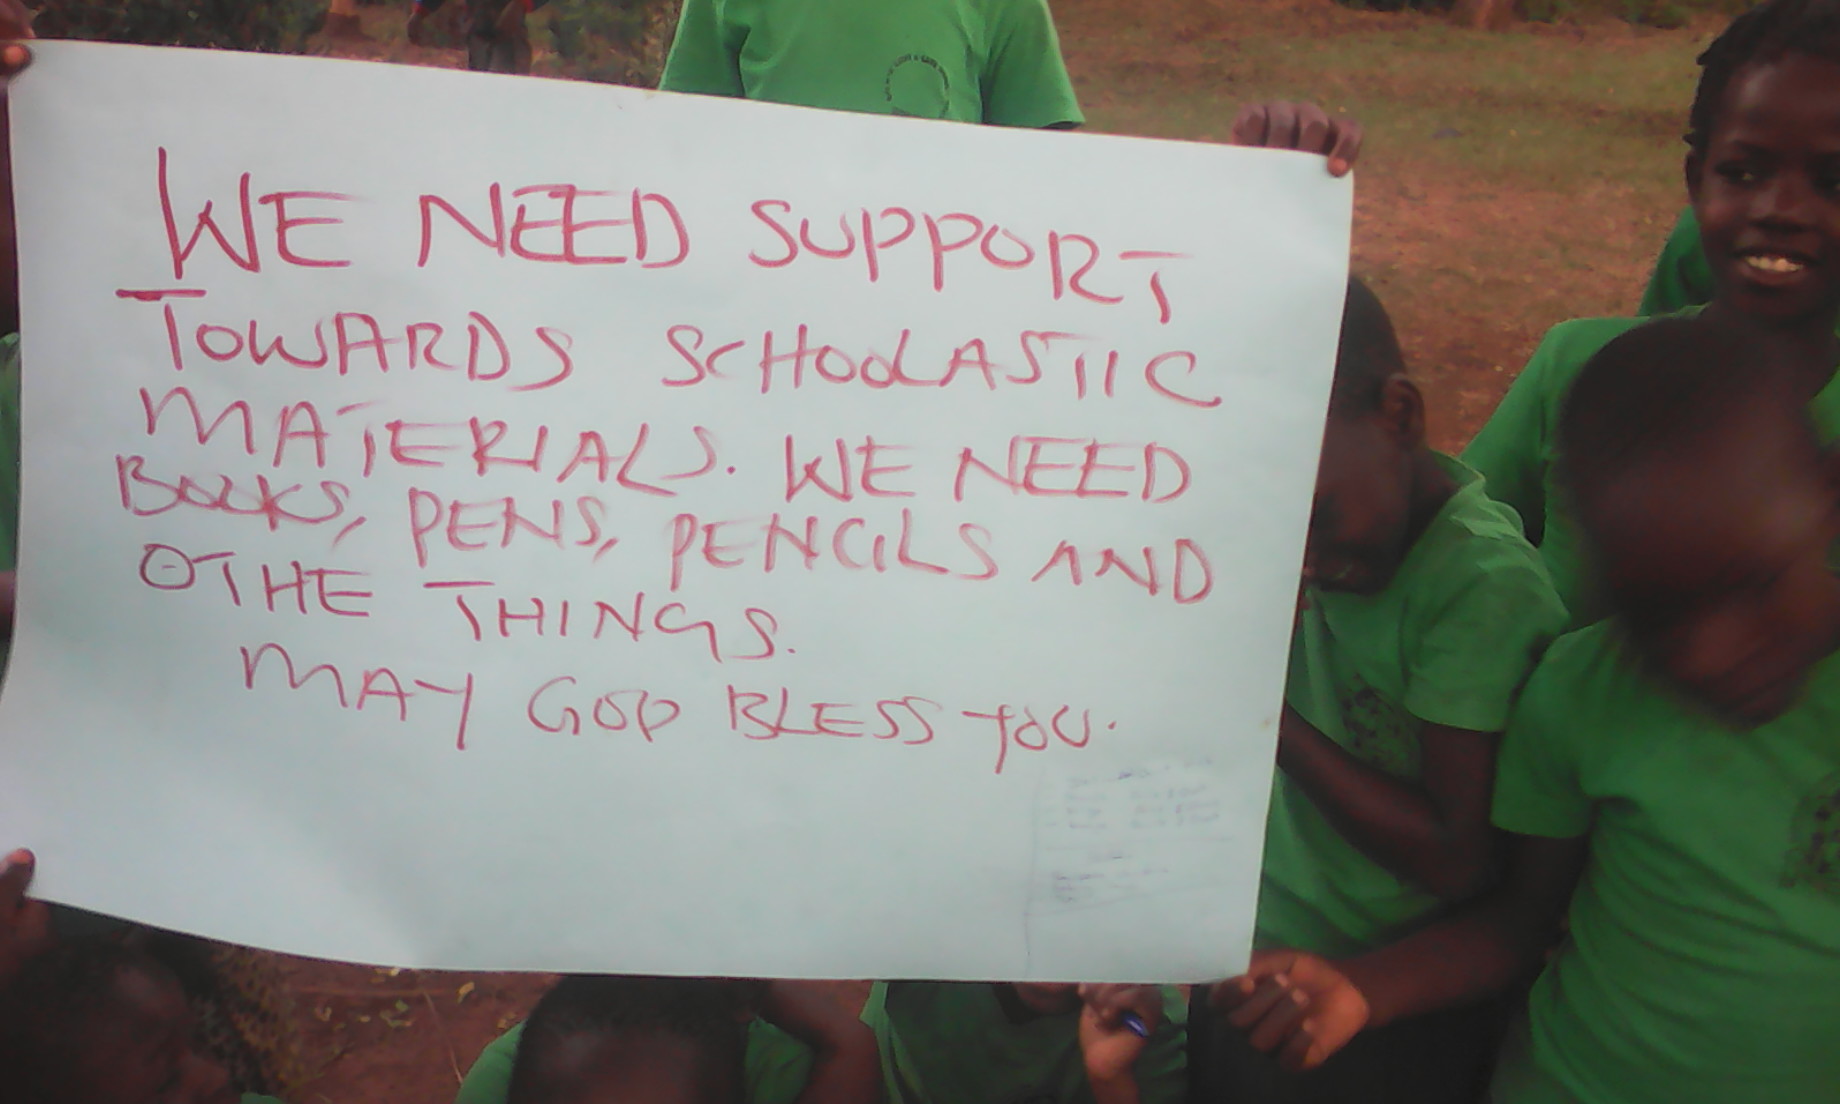 WE NEED SUPPORT
TOWARDS SCHOOLASTIC
MATERIALS. WE NEED
BOOKS, PENS, PENCILS AND
OTHE THINGS.
MAY GOD BLESS YOU.